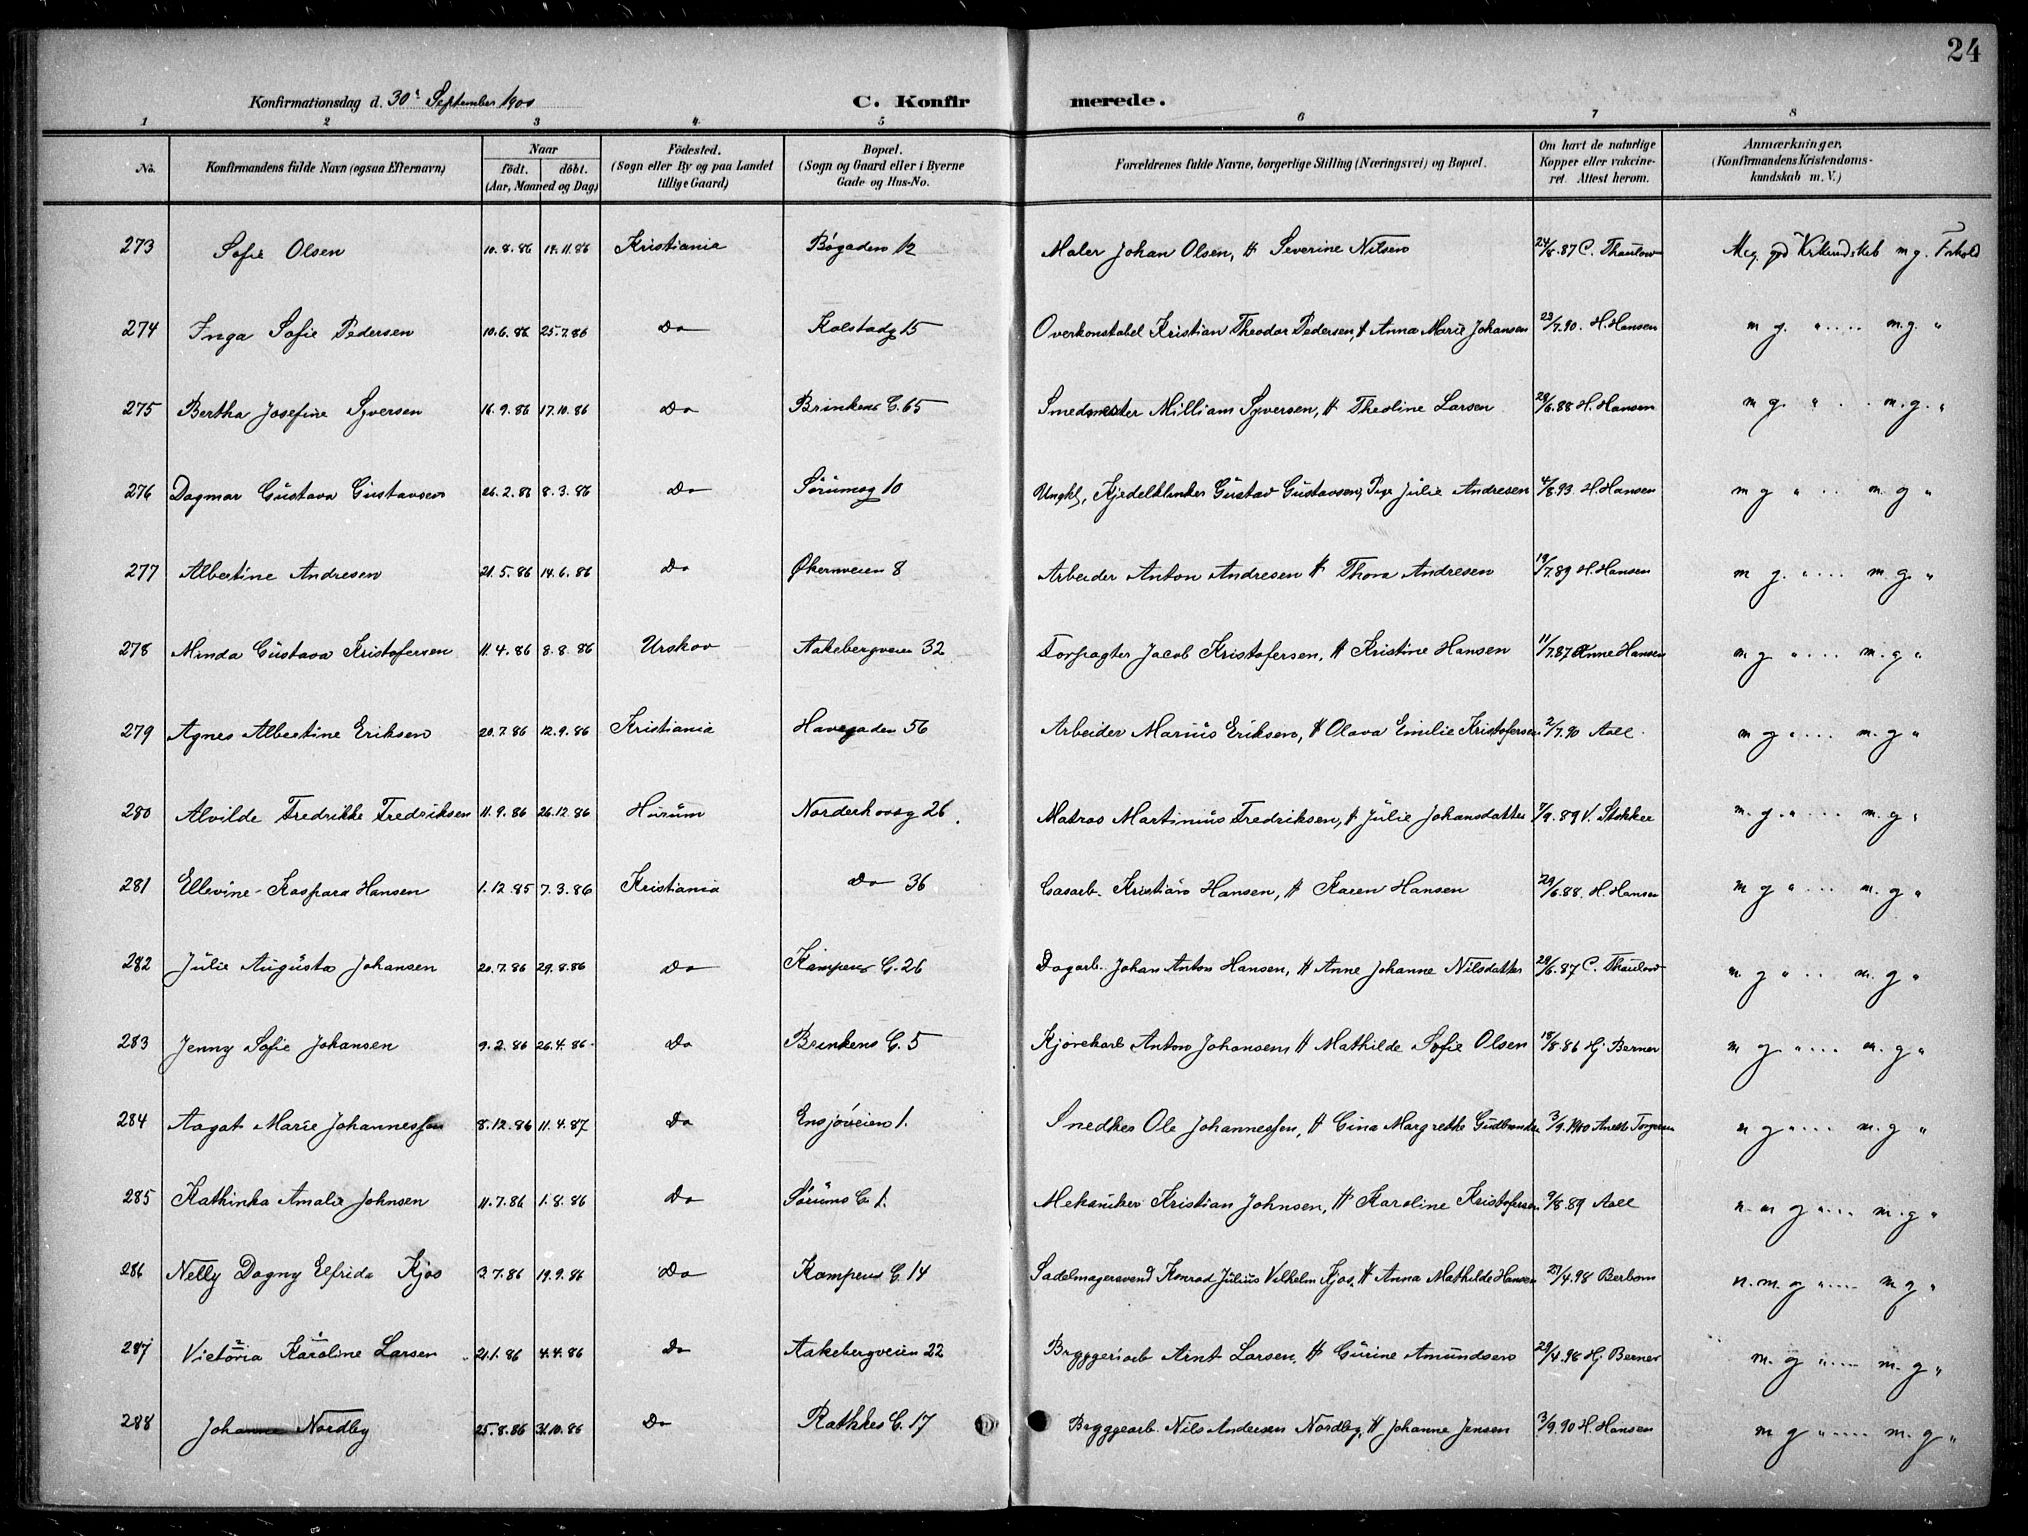 24
Konfirmationsdag d. 30' September 1900
C. Konfirmerede.
1 2 3 4 5 6 7 8
No. Konfirmandens fulde Navn (ogsaa Efternavn) Naar födt. döbt. (Aar, Maaned og Dag) Födested. (Sogn eller By og paa Landet tillige Gaard) Bopæl. (Sogn og Gaard eller i Byerne Gade og Hus-No. Forældrenes fulde Navne, borgerlige Stilling (Næringsvei) og Bopæl. Om havt de naturlige Kopper eller vakcineret. Attest herom. Anmærkninger. (Konfirmandens Kristendomskundskab m. V.)
273 Sofie Olsen 10.8.86 14.11.86 Kristiania Bøgaden 12 Maler Johan Olsen, H Severine Nilsen 24/8.87 C. Thaulow Meg. god Krkundskab m g. Forhold
274 Inga Sofie Pedersen 10.6.86 25.7.86 Do Kolstadg 15 Overkonstabel Kristian Theodor Pedersen, H Anna Marie Johansen 23/7.90. H. Hansen m g. " .... m.g. "
275 Bertha Josefine Syversen 16.9.86 17.10.86 Do Brinkens G. 65 Smedmester Milliam Syversen, H Theoline Larsen 28/6.88 H. Hansen m g. " .. m.g. "
276 Dagmar Gustava Gustavsen 26.2.86 8.3.86 Do Sørumsg 10 Ungkl, Kjedelklinker Gustav Gustavsen, Pige Julie Andresen 4/8.93. H. Hansen m g " ... m. g "
277 Albertine Andresen 21.5.86 14.6.86 Do Økernveien 8 Arbeider Anton Andresen H Thora Andresen 19/7.89 H. Hansen m g. " ... m. g. "
278 Minda Gustava Kristofersen 11.4.86 8.8.86 Urskov Aakebergveien 32 Forpagter Jacob Kristofersen, H Kristine Hansen 11/7.87 Anne Hansen m g " ... m. g "
279 Agnes Albertine Eriksen 20.7.86 12.9.86 Kristiania Havegaden 56 Arbeider Marius Eriksen, H Olava Emilie Kristofersen 2/7.90 Aall m g " ... m. g "
280 Alvilde Fredrikke Fredriksen 11.9.86 26.12.86 Hurum Norderhovsg 26. Matros Martinius Fredriksen, H Julie Johansdatter 7/9.89 V. Stokker m. g. " ... m. g "
281 Ellevine-Kaspara Hansen 1.12.85 7.3.86 Kristiania Do 36 Gasarb. Kristian Hansen, H Karen Hansen 29/6.88. H. Hansen m g " ... m. g "
282 Julie Augusta Johansen 20.7.86 29.8.86 Do Kampens G. 26 Dagarb. Johan Anton Hansen, H Anne Johanne Nilsdatter 29/6.87 C. Thaulow m g " ... m. g "
283 Jenny Sofie Johansen 9.2.86 26.4.86 Do Brinkens G. 5 Kjørekarl Anton Johansen H Mathilde Sofie Olsen 18/8.86 Hj Berner m g. " ... m. g "
284 Aagat Marie Johannessen 8.12.86 11.4.87 Do Ensjøveien 1. Snedker Ole Johannessen, H Gina Margrethe Gudbrandsen 3/9.1900 Anette Torgersen m g " ... m. g "
285 Kathinka Amalie Johnsen 11.7.86 1.8.86 Do Sørums G 1. Mekaniker Kristian Johnsen, H Karoline Kristofersen 9/8.89 Aall n. m g " ... m. g "
286 Nelly Dagny Elfrida Kjos 3.7.86 19.9.86 Do Kampens G. 14 Sadelmagersvend Konrad Julius Vilhelm Kjos, H Anna Mathilde Hansen 27/4.98 Berbom n. m. g " .... m g "
287 Victoria Karoline Larsen 21.1.86 4.4.86 Do Aakebergveien 22 Bryggeriarb Arnt Larsen, H Gurine Amundsen 29/4.98 Hj Berner m. g " .... m. g "
288 Johanne Nordby 25.8.86 31.10.86 Do Rathkes G. 17 Bryggearb. Nils Andersen Nordby, H Johanne Jensen 3/9.90 H. Hansen m g " .... m. g "